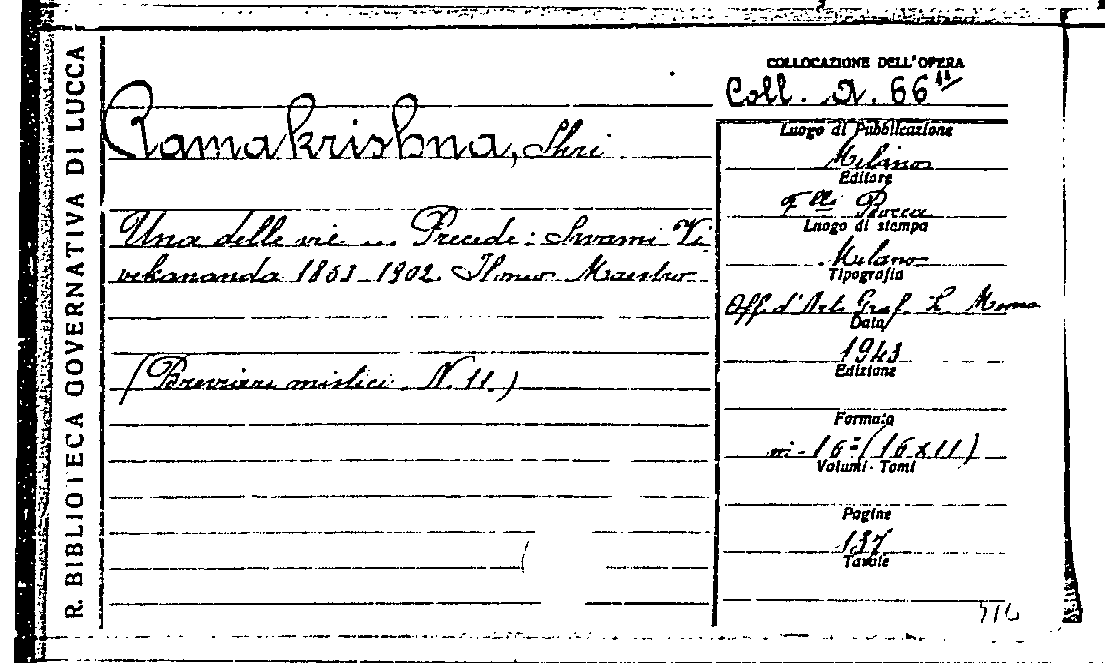 R. BIBLIOTECA GOVERNATIVA DI LUCCA
Ramakrishna, Shri
Una delle vie ... Precede: Swami Vi
vekananda 1863-1902. Il mio Maestro
(Breviari mistici. N. 11.)
COLLOCAZIONE DELL'OPERA
Coll. A. 66 11
Luogo di Pubblicazione
Milano
Editore
F.lli Bocca
Luogo di stampa
Milano
Tipografia
Off. d'Arte Graf. L.
Data
1943
Edizione
Formato
in-16º (16x11)
Volumi - Tomi
Pagine
137
Tavole